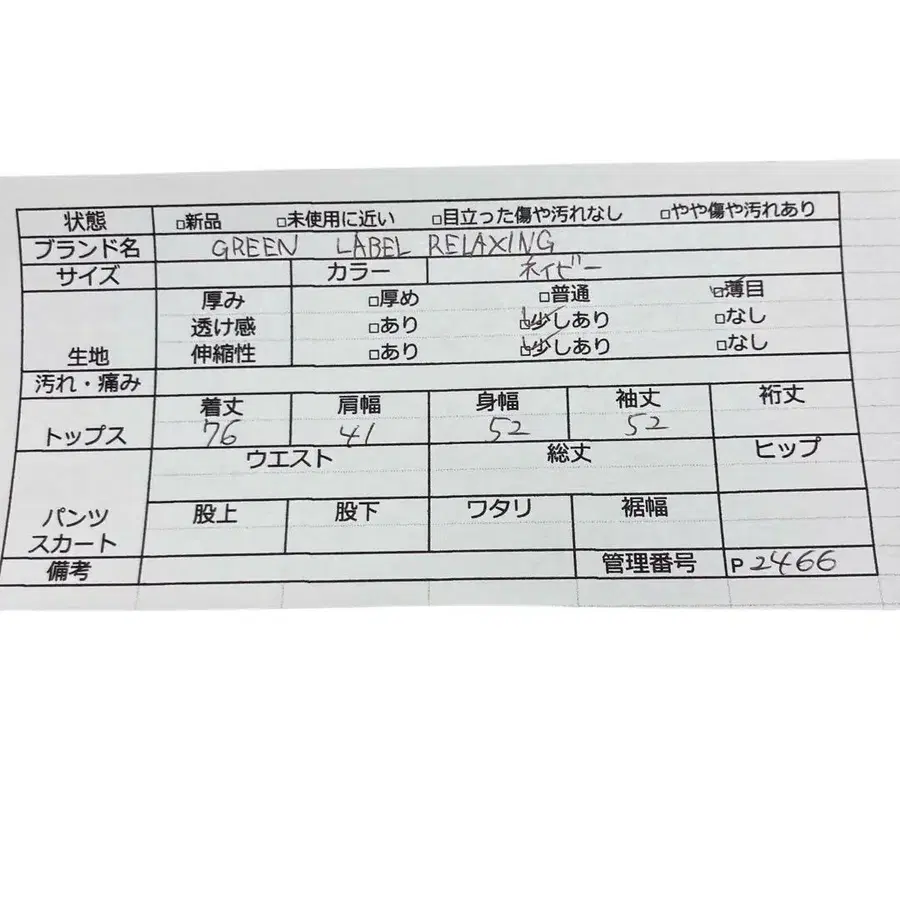 状態 □新品 □未使用に近い □目立った傷や汚れなし □やや傷や汚れあり
ブランド名 GREEN LABEL RELAXING
サイズ カラー ネイビー
生地 厚み □厚め □普通 ☑薄目
透け感 □あり ☑少しあり □なし
伸縮性 □あり ☑少しあり □なし
汚れ・痛み
トップス 着丈 肩幅 身幅 袖丈 裄丈
76 41 52 52
パンツ スカート ウエスト 総丈 ヒップ
股上 股下 ワタリ 裾幅
備考 管理番号 P2466